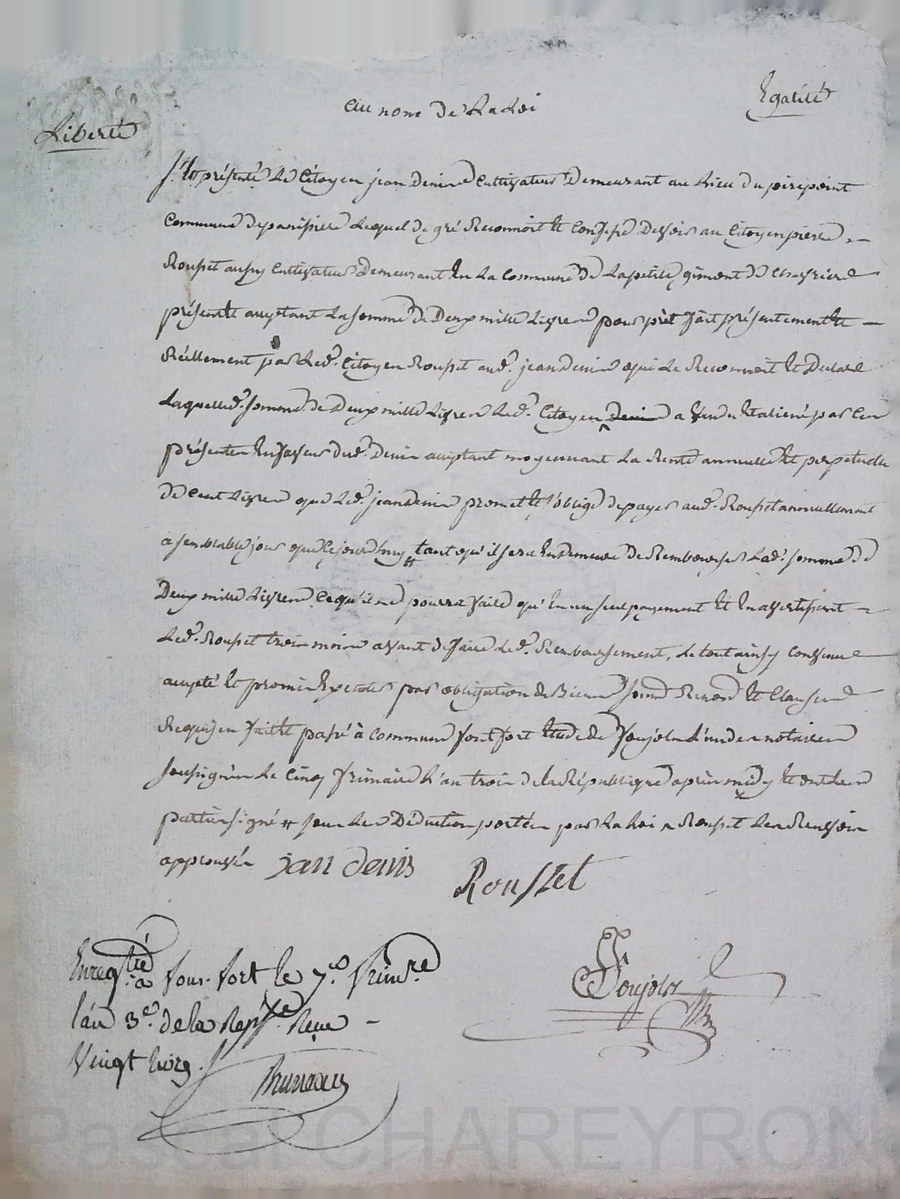 au nom de la Loi
Egalité
Liberté
Sest présenté le Citoyen jean denis Cultivateur demeurant au Lieu du
Commune de lequel de gré Reconnoit et Confesse Devoir au Citoyen pierre
Rousset aussy Cultivateur Demeurant En La Commune de Lapetite
présent et acceptant La somme de Deux mille Livres pour prêt fait présentement et
Réellement par Led. Citoyen Rousset aud. jean denis qui Le Reconnoit et Declare
Laquelle d. somme de Deux mille Livres Led. Citoyen denis a vendu et aliené par Ces
présentes En faveur dud. Denis acceptant moyennant La Rente annuelle et perpetuelle
de Cent Livres que Led. jean denis promet et s'oblige de payer aud. Rousset annuellement
a semblable jour que Cejourd'huy tant qu'il sera En demeure de Rembourser Lad. somme de
Deux mille Livres Ce qu'il ne pourra faire qu'En un seul payement Et En avertissant
Led. Rousset trois mois avant de faire Led. Remboursement, Le tout ainsy Convenu
accepté et promis Executer par obligation de Biens Soumd. Renond. et Clauses
Requis En fait et passé à Commune fontfort Etude de foujols L'un des notaires
soussignés Le Cinq frimaire L'an trois de la République après midy Et ont Les
parties signé sous Les Déduction portées par La Loi Rousset Les Renvois
approuvés jan denis Rousset
Enregtré à fons-fort le 7e. frimre.
l'an 3e. de la Repque Reçu
Vingt livres
Foujols